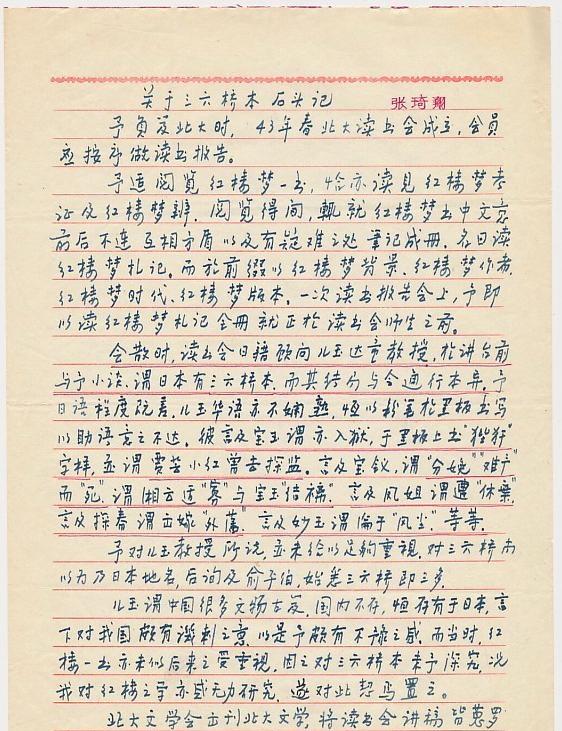 关于三六桥本 石头记
张琦翔
予负笈北大时，43年春北大读书会成立，会员
应按序做读书报告。
予适阅览红楼梦一书，恰亦读见红楼梦考
证及红楼梦辨，阅览得间，辄就红楼梦书中文意
前后不连互相矛盾以及有疑难之处笔记成册，名曰读
红楼梦札记。而於前缀以红楼梦背景、红楼梦作者、
红楼梦时代、红楼梦版本。一次读书报告会上，予即
以读红楼梦札记全册就正於读书会师生之前。
会散时，读书会日籍顾问儿玉达童教授，於讲台前
与予小谈，谓日本有三六桥本，而其结局与今通行本异。予
日语程度既差，儿玉华语亦不娴熟，恒以粉笔於黑板书写
以助语言之不达。彼言及宝玉谓亦入狱，于黑板上书"狴犴"
字样，并谓贾芸小红曾去探监。言及宝钗，谓"分娩""难产"
而"死"。谓湘云适"寡"与宝玉"结褵"。言及凤姐谓遭"休弃"
言及探春谓出嫁"外藩"。言及妙玉谓沦于"风尘"。等等。
予对儿玉教授所谈，并未给以足够重视，对三六桥本
以为乃日本地名，后询及俞子伯，始悉三六桥即三多。
儿玉谓中国很多文物古籍，国内不存，恒存有于日本，言
下对我国颇有讽刺之意，以是予颇有不豫之感。而当时，红
楼一书亦未似后来之受重视，因之对三六桥本未予深究，况
我对红楼之学亦感无力研究，遂对此恝焉置之。
北大文学会出刊北大文学，将读书会讲稿皆蒐罗